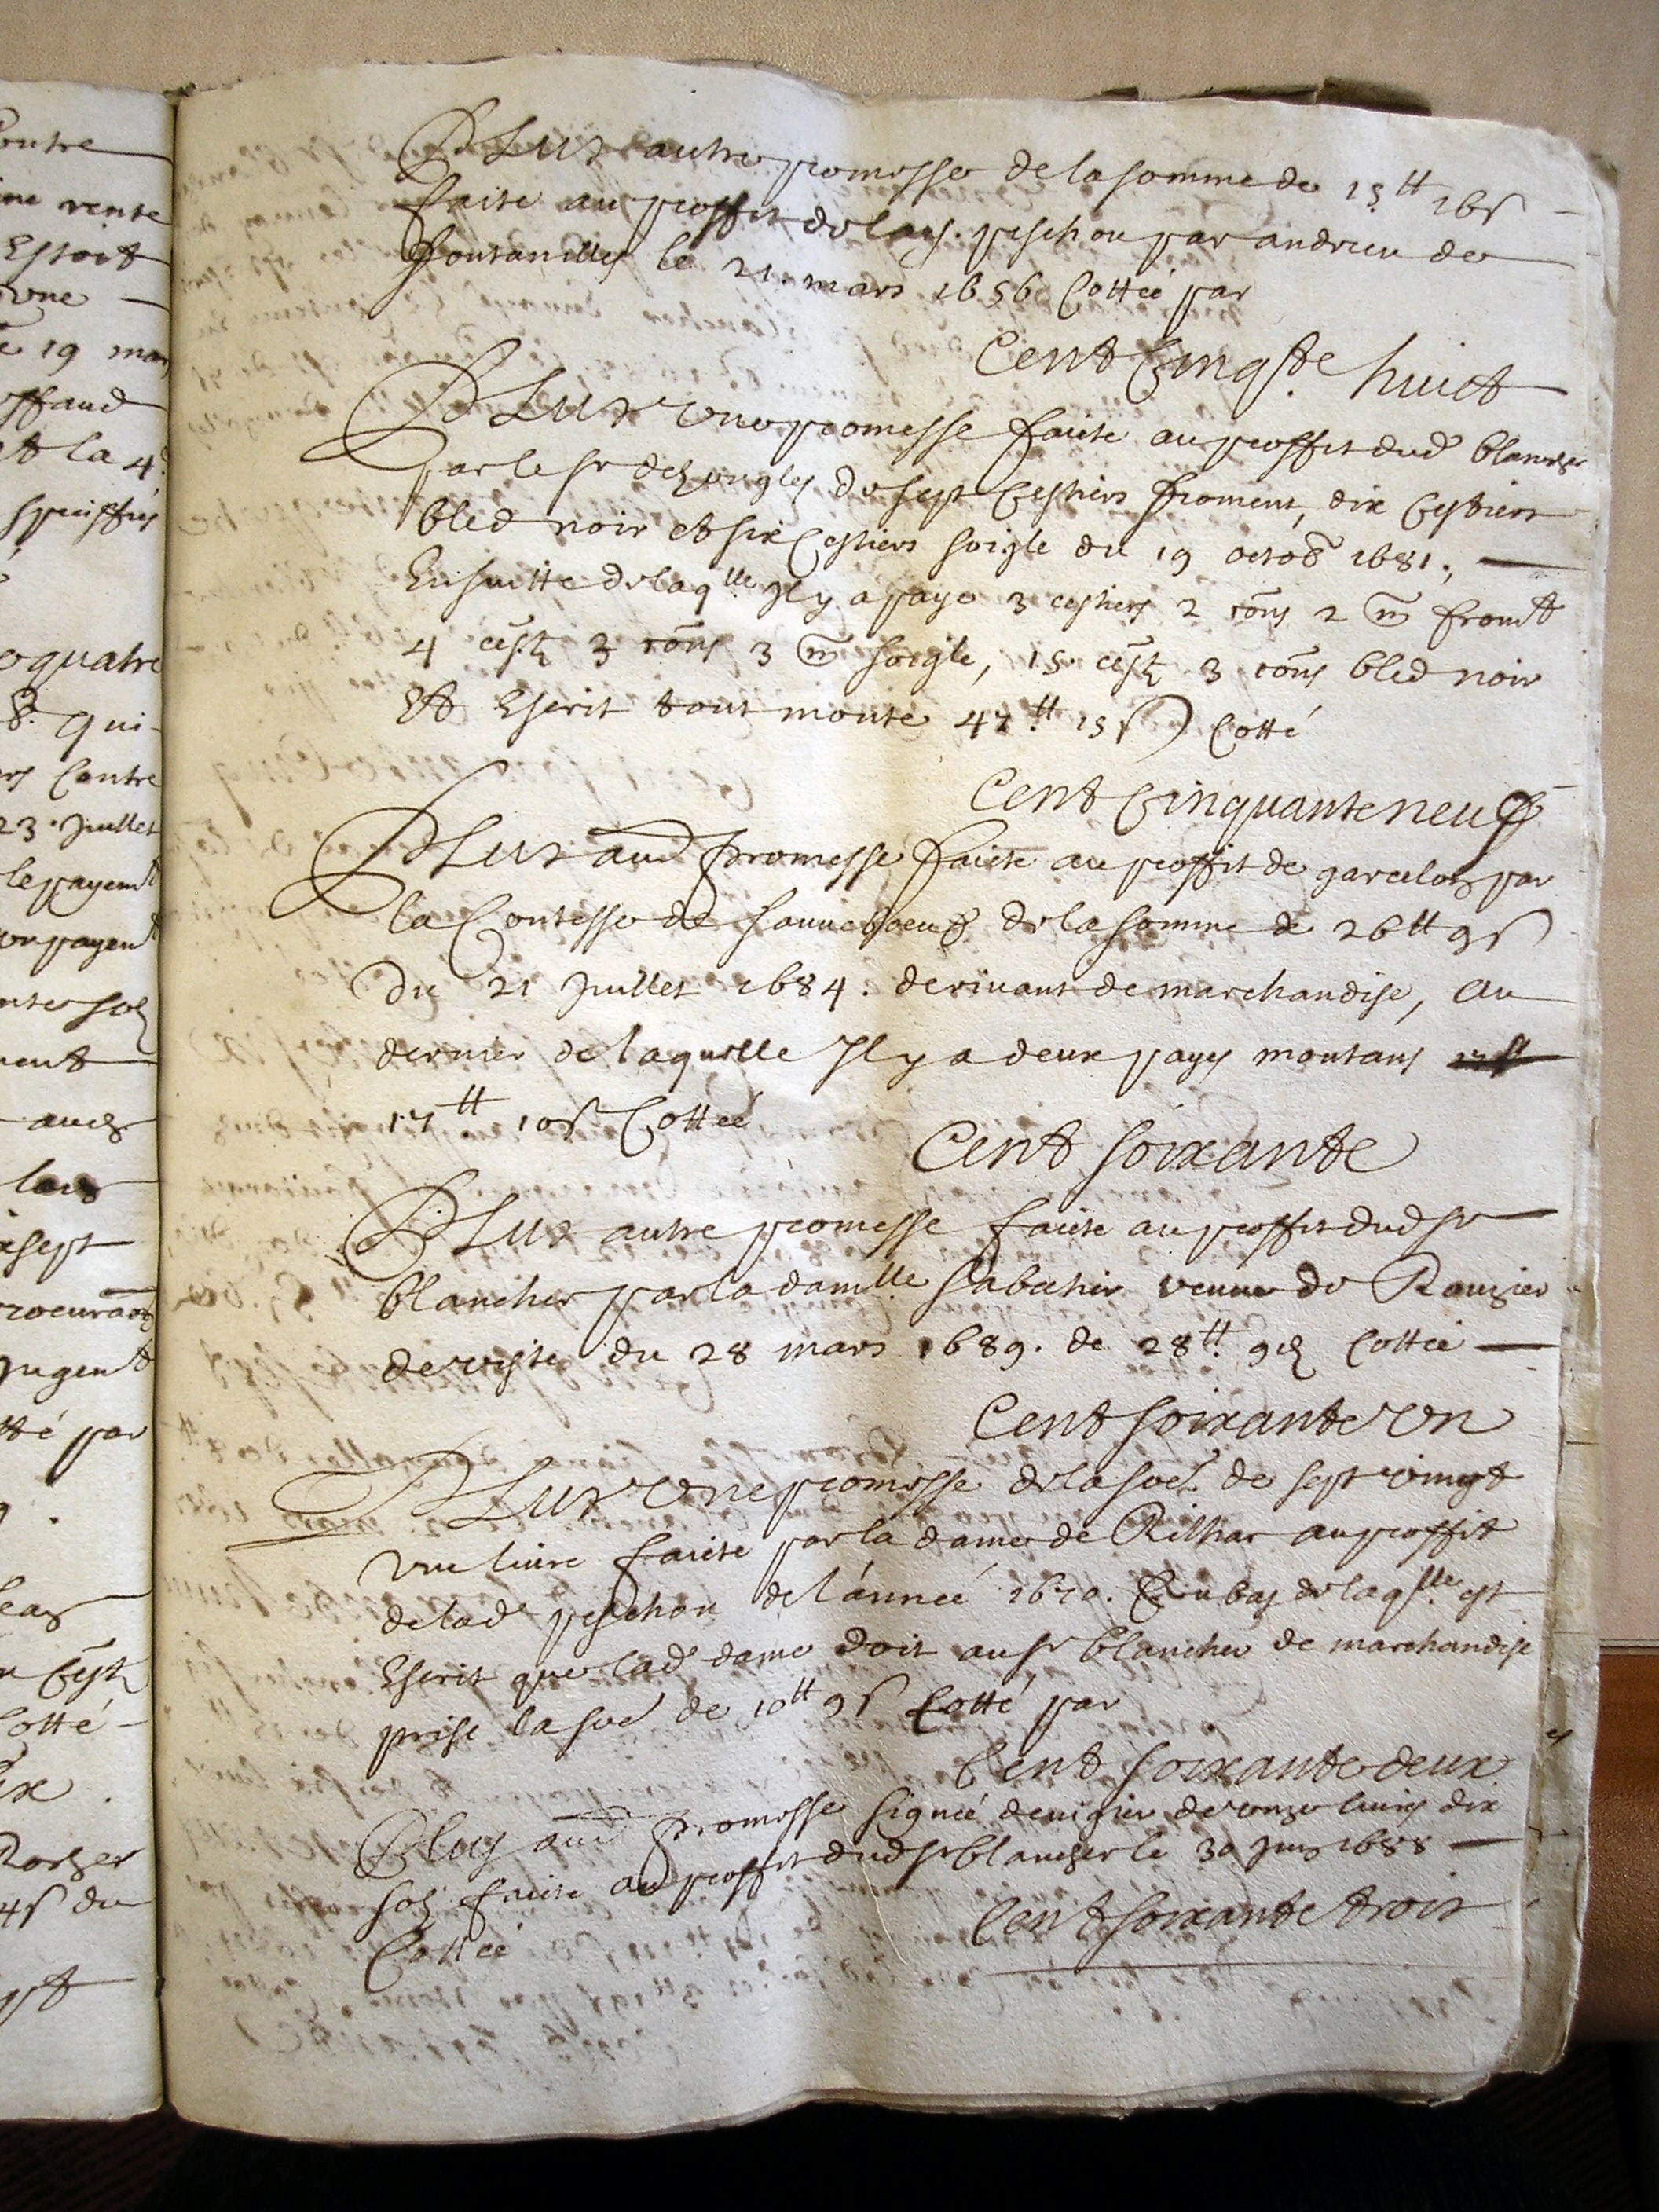 outre
ne vente
Estoit
vne
19 mar
ffaud
et la 4e
speciffiés
quatre
8. qui
contre
23 Juillet
le payemt
payemt
sol
ment
lad
sept
Jugemt
tté par
Cest
Cotté
ix
4s du
Plus autre promesse de la somme de 15tt 16s
faite au proffit de lad. peschou par andrieu de
fontanilles le 21. mars 1656 Cottéé par
Cent Cinqte huict
Plus vne promesse faite au proffit dud blancher
par le sr de de sept Cestiers froment, dix Cestiers
bled noir et six Cestiers soigle du 19 octob 1681.
Ensuitte de laqlle Il y a paye 3 cestiers 2 cons 2 m fromt
4 cest 3 cons 3 m soigle, 15 cest 3 cons bled noir
Et Escrit tout monte 47tt 15s Cotté
Cent Cinquante neuf
Plus aue promesse faite au proffit de par
la Contesse de sauueboeuf de la somme de 26tt 9s
du 21 Juillet 1684. deriuant de marchandise, au
dernier de laquelle Il y a deux payes montans
17tt 10s Cottéé
Cent soixante
Plus autre promesse faite au proffit dud sr
blancher par la damlle sabatier veuue de Rouzier
de du 28 mars 1689. de 28tt 9d Cottéé
Cent soixante vn
Plus vne promesse de la soe de sept vingt
vne liure faicte par la dame de Rilhac au proffit
de lad peschou de l'annéé 1670. En bas de laqlle est
Escrit que lad dame doit au sr blancher de marchandise
prise la soe de 10tt 9s Cotté par
Cent soixante deux
Plus aue promesse signéé de onze liures dix
sols faite au proffit dud sr blancher le 30 Juin 1688
Cottéé
Cent soixante trois